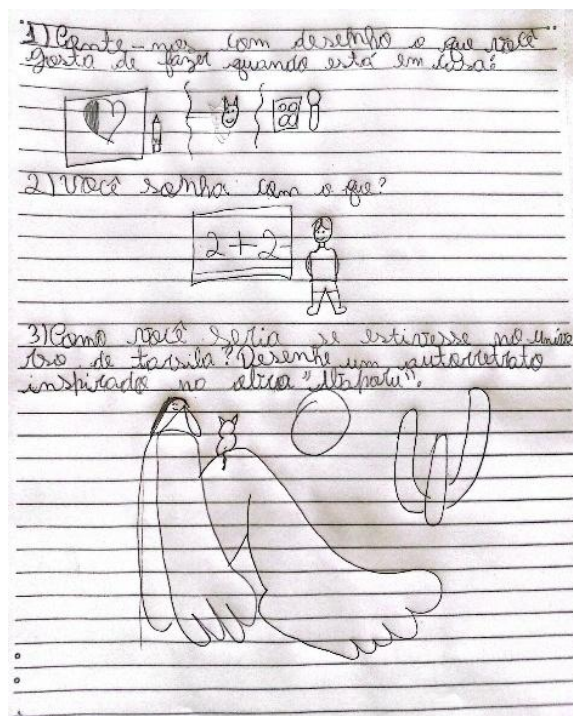 1) Conte-nos com desenho o que você
gosta de fazer quando está em casa?
2) Você sonha com o que?
2+2
3) Como você seria se estivesse no unive
rso de tarsila? Desenhe um autorretrato
inspirado na obra "Abaporu".